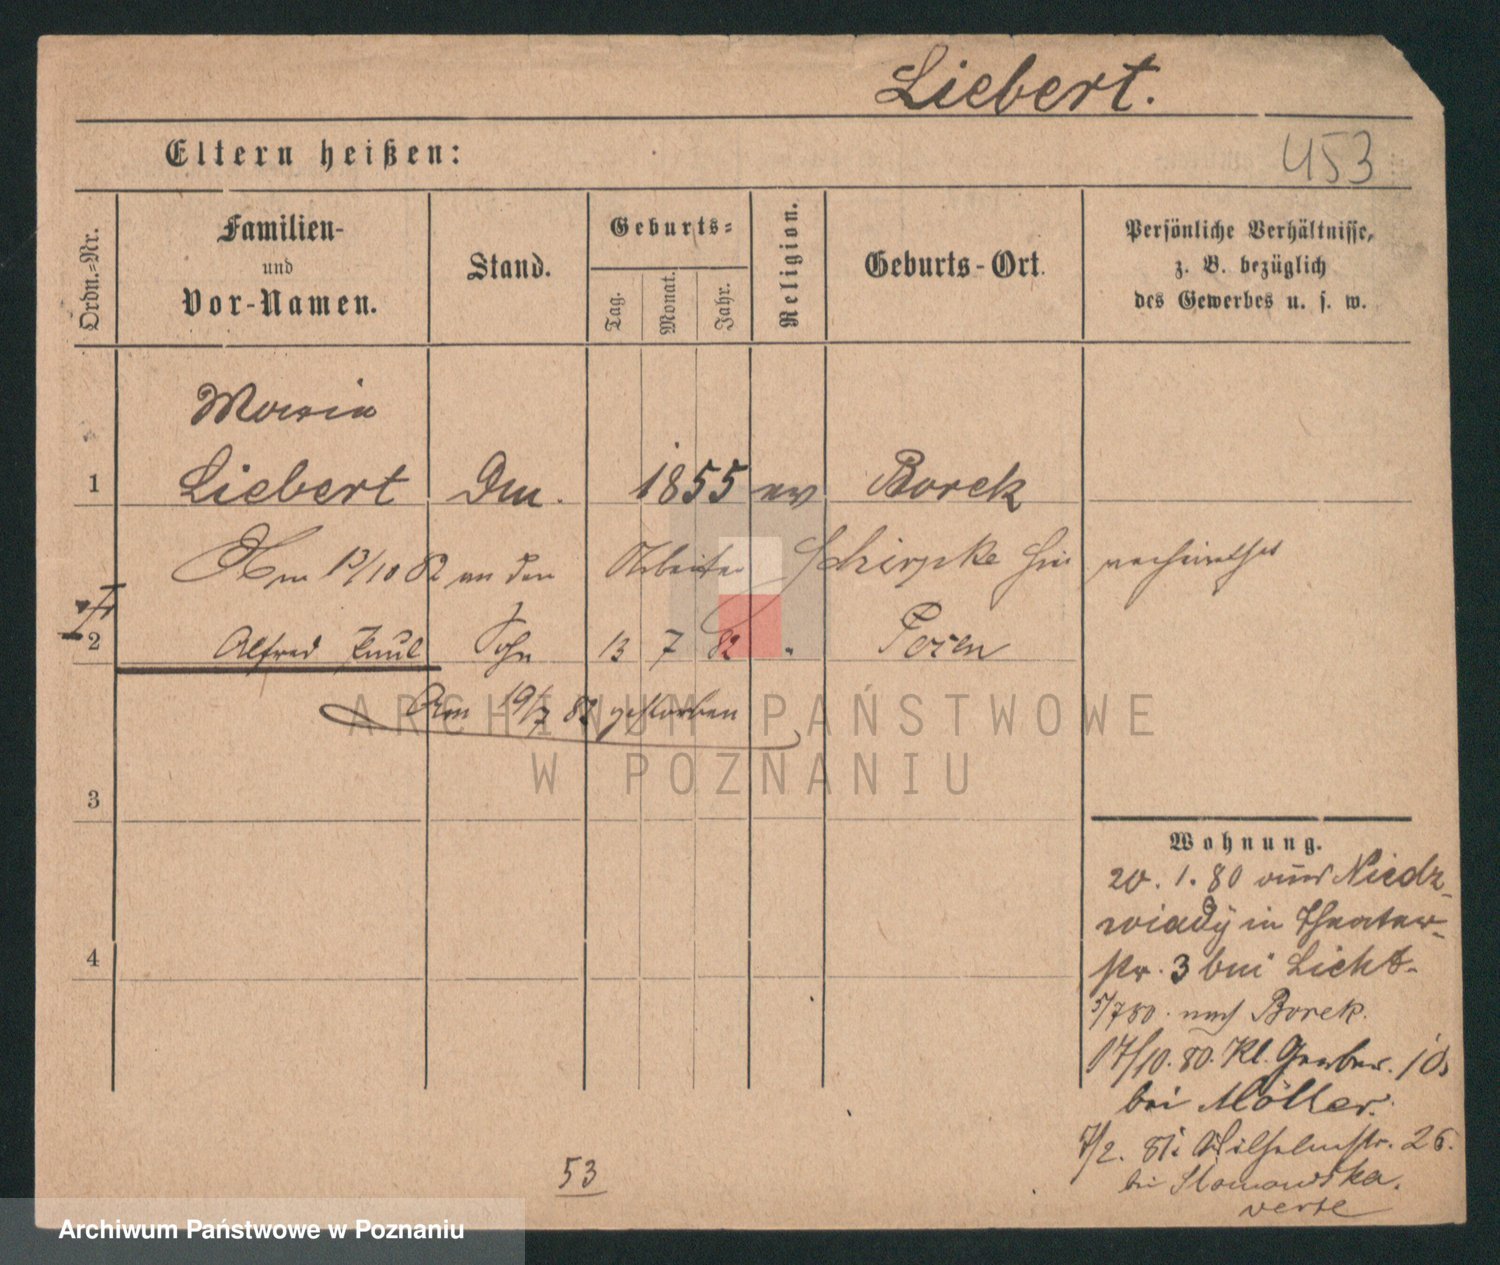 Liebert.
Eltern heißen:
453
Ordn.=Nr.
Familien-
und
Vor-Namen.
Stand.
Geburts=
Tag.
Monat.
Jahr.
Religion.
Geburts-Ort.
Persönliche Verhältnisse,
z. B. bezüglich
des Gewerbes u. s. w.
Maria
1 Liebert 1855 ev Borek
Am 13/10 82 an den Arbeiter Schirpke hier verheirathet
2 Alfred Paul Sohn 13 7 82 Posen
Am 19/7 82 gestorben
3
4
Wohnung.
20. 1. 80 aus Niedz-
wiady in Theater-
str. 3 bei Licht-
5/7 80. nach Borek.
17/10. 80. Kl. Gerber. 10,
bei Möller.
7/2. 81. Wilhelmstr. 26.
bei Slomowska.
verte
53
ARCHIWUM PAŃSTWOWE
W POZNANIU
Archiwum Państwowe w Poznaniu